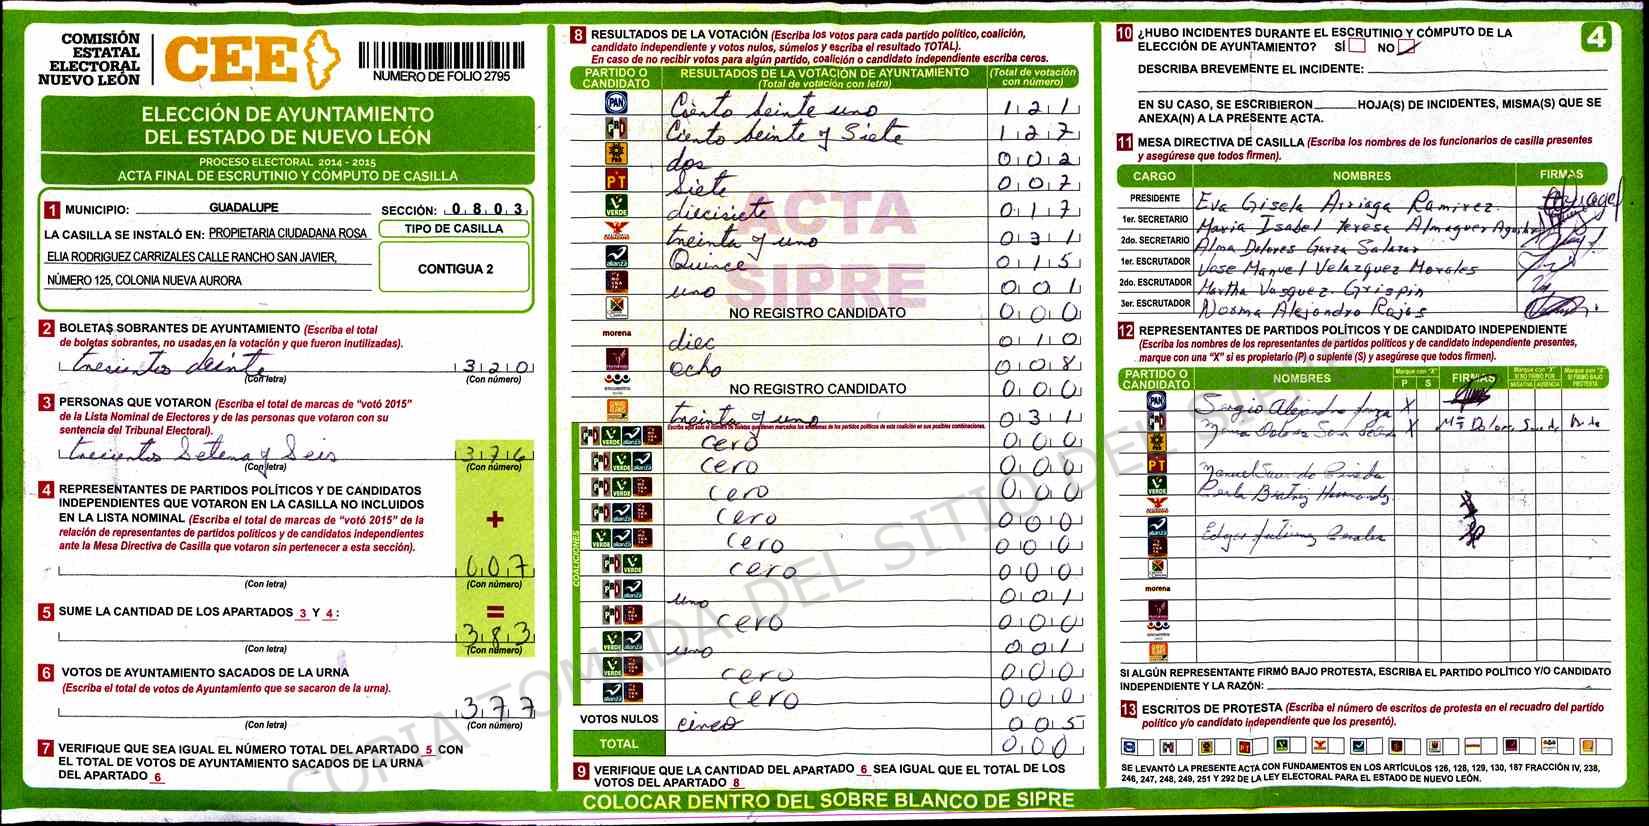 COMISIÓN
ESTATAL
ELECTORAL
NUEVO LEÓN
CEE
NUMERO DE FOLIO 2795
ELECCIÓN DE AYUNTAMIENTO
DEL ESTADO DE NUEVO LEÓN
PROCESO ELECTORAL 2014 - 2015
ACTA FINAL DE ESCRUTINIO Y CÓMPUTO DE CASILLA
1 MUNICIPIO: GUADALUPE SECCIÓN: 0 8 0 3
LA CASILLA SE INSTALÓ EN: PROPIETARIA CIUDADANA ROSA
ELIA RODRIGUEZ CARRIZALES CALLE RANCHO SAN JAVIER,
NÚMERO 125, COLONIA NUEVA AURORA
TIPO DE CASILLA
CONTIGUA 2
2 BOLETAS SOBRANTES DE AYUNTAMIENTO (Escriba el total
de boletas sobrantes, no usadas,en la votación y que fueron inutilizadas).
3 2 0
(Con letra) (Con número)
3 PERSONAS QUE VOTARON (Escriba el total de marcas de "votó 2015"
de la Lista Nominal de Electores y de las personas que votaron con su
sentencia del Tribunal Electoral).
trecientos Setena y Seis 3 7 6
(Con letra) (Con número)
4 REPRESENTANTES DE PARTIDOS POLÍTICOS Y DE CANDIDATOS
INDEPENDIENTES QUE VOTARON EN LA CASILLA NO INCLUIDOS
EN LA LISTA NOMINAL (Escriba el total de marcas de "votó 2015" de la
relación de representantes de partidos políticos y de candidatos independientes
ante la Mesa Directiva de Casilla que votaron sin pertenecer a esta sección).
+
0 0 7
(Con letra) (Con número)
5 SUME LA CANTIDAD DE LOS APARTADOS 3 Y 4 :
=
3 8 3
(Con letra) (Con número)
6 VOTOS DE AYUNTAMIENTO SACADOS DE LA URNA
(Escriba el total de votos de Ayuntamiento que se sacaron de la urna).
3 7 7
(Con letra) (Con número)
7 VERIFIQUE QUE SEA IGUAL EL NÚMERO TOTAL DEL APARTADO 5 CON
EL TOTAL DE VOTOS DE AYUNTAMIENTO SACADOS DE LA URNA
DEL APARTADO 6
8 RESULTADOS DE LA VOTACIÓN (Escriba los votos para cada partido político, coalición,
candidato independiente y votos nulos, súmelos y escriba el resultado TOTAL).
En caso de no recibir votos para algún partido, coalición o candidato independiente escriba ceros.
PARTIDO O CANDIDATO RESULTADOS DE LA VOTACIÓN DE AYUNTAMIENTO (Total de votación con letra) (Total de votación con número)
PAN Ciento veinte uno 1 2 1
PRD Ciento veinte y Siete 1 2 7
dos 0 0 2
PT Siete 0 0 7
VERDE diecisiete 0 1 7
treinta y uno 0 3 1
alianza Quince 0 1 5
uno 0 0 1
NO REGISTRO CANDIDATO 0 0 0
morena diec 0 1 0
ocho 0 0 8
NO REGISTRO CANDIDATO 0 0 0
treinta y uno 0 3 1
COALICIONES
cero 0 0 0
cero 0 0 0
cero 0 0 0
cero 0 0 0
cero 0 0 0
cero 0 0 0
uno 0 0 1
cero 0 0 0
uno 0 0 1
cero 0 0 0
cero 0 0 0
VOTOS NULOS cinco 0 0 5
TOTAL 0 0 0
ACTA
SIPRE
9 VERIFIQUE QUE LA CANTIDAD DEL APARTADO 6 SEA IGUAL QUE EL TOTAL DE LOS
VOTOS DEL APARTADO 8
COLOCAR DENTRO DEL SOBRE BLANCO DE SIPRE
10 ¿HUBO INCIDENTES DURANTE EL ESCRUTINIO Y CÓMPUTO DE LA
ELECCIÓN DE AYUNTAMIENTO? SÍ NO
4
DESCRIBA BREVEMENTE EL INCIDENTE:
EN SU CASO, SE ESCRIBIERON HOJA(S) DE INCIDENTES, MISMA(S) QUE SE
ANEXA(N) A LA PRESENTE ACTA.
11 MESA DIRECTIVA DE CASILLA (Escriba los nombres de los funcionarios de casilla presentes
y asegúrese que todos firmen).
CARGO NOMBRES FIRMAS
PRESIDENTE Eva Gisela Arriaga Ramirez
1er. SECRETARIO Maria Isabel Teresa Almaguer
2do. SECRETARIO Alma Dolores Garza Salazar
1er. ESCRUTADOR Jose Manuel Velazquez Morales
2do. ESCRUTADOR Martha Vasquez Grispin
3er. ESCRUTADOR Norma Alejandro Rojas
12 REPRESENTANTES DE PARTIDOS POLÍTICOS Y DE CANDIDATO INDEPENDIENTE
(Escriba los nombres de los representantes de partidos políticos y de candidato independiente presentes,
marque con una "X" si es propietario (P) o suplente (S) y asegúrese que todos firmen).
PARTIDO O CANDIDATO NOMBRES Marque con "X" P S FIRMAS Marque con "X" SI NO FIRMÓ POR NEGATIVA AUSENCIA Marque con "X" SI FIRMÓ BAJO PROTESTA
PAN Sergio Alejandro X
Maria Dolores X
PT Manuel
VERDE Perla Beatriz Hernandez
alianza Edgar
morena
SI ALGÚN REPRESENTANTE FIRMÓ BAJO PROTESTA, ESCRIBA EL PARTIDO POLÍTICO Y/O CANDIDATO
INDEPENDIENTE Y LA RAZÓN:
13 ESCRITOS DE PROTESTA (Escriba el número de escritos de protesta en el recuadro del partido
político y/o candidato independiente que los presentó).
SE LEVANTÓ LA PRESENTE ACTA CON FUNDAMENTOS EN LOS ARTÍCULOS 126, 128, 129, 130, 187 FRACCIÓN IV, 238,
246, 247, 248, 249, 251 Y 292 DE LA LEY ELECTORAL PARA EL ESTADO DE NUEVO LEÓN.
COPIA TOMADA DEL SITIO DEL SIPRE